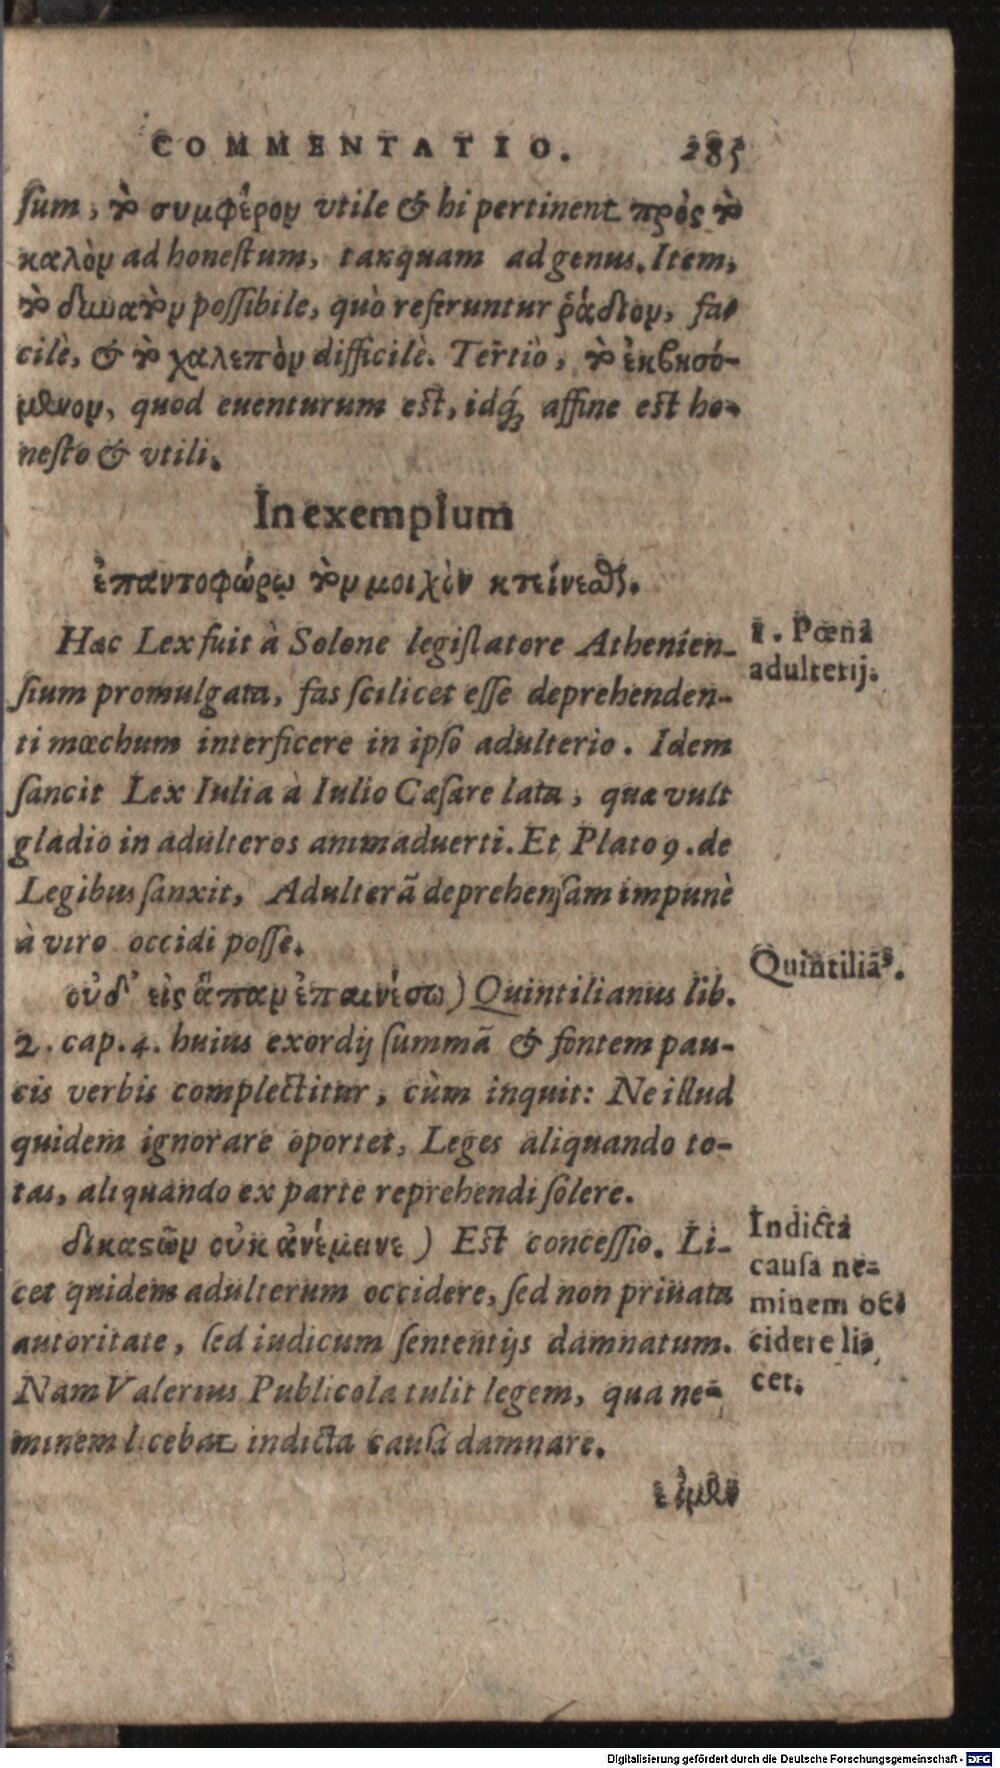 COMMENTATIO. 285
ſum, τὸ συμφέρον vtile & hi pertinent πρὸς τὸ
καλὸν ad honeſtum, tanquam ad genus. Item,
τὸ δυνατὸν poſſibile, quò referuntur ῥάδιον, fa-
cilè, & τὸ χαλεπὸν difficilè. Tertiò, τὸ ἐκβησό-
μενον, quod euenturum est, idq́; affine est ho-
neſto & vtili.
In exemplum
ἐπαυτοφώρῳ τὸν μοιχὸν κτείνεσθαι.
Hæc Lex fuit à Solone legiſlatore Athenien-
ſium promulgata, fas ſcilicet eſſe deprehenden-
ti mœchum interficere in ipſo adulterio. Idem
ſancit Lex Iulia à Iulio Cæſare lata, quæ vult
gladio in adulteros animaduerti. Et Plato 9. de
Legibus ſanxit, Adulterã deprehenſam impunè
à viro occidi poſſe.
1. Pœna
adulterij.
οὐδ' εἰς ἅπαν ἐπαινέσω) Quintilianus lib.
2. cap. 4. huius exordij ſummã & fontem pau-
cis verbis complectitur, cùm inquit: Ne illud
quidem ignorare oportet, Leges aliquando to-
tas, aliquando ex parte reprehendi ſolere.
Quintiliãs.
δικαςῶν οὐκ ἀνέμεινε) Est conceſſio. Li-
cet quidem adulterum occidere, ſed non priuata
autoritate, ſed iudicum ſententijs damnatum.
Nam Valerius Publicola tulit legem, qua ne-
minem licebat indicta cauſa damnare.
Indicta
cauſa ne-
minem oc-
cidere li-
cet.
εἰ μὲν